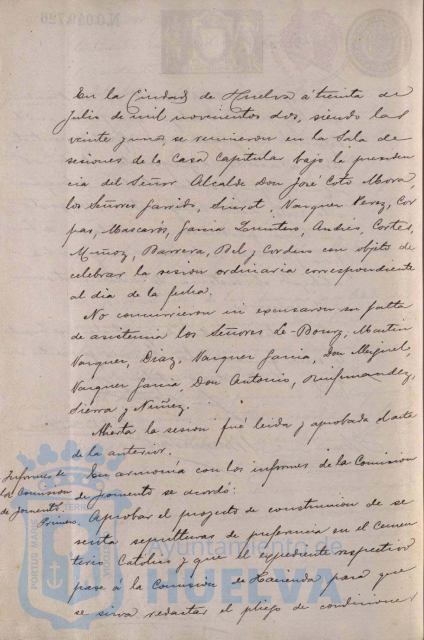 N.0.049.726
En la Ciudad de Huelva á treinta de
Julio de mil novecientos dos, siendo las
veinte y una, se reunieron en la Sala de
sesiones de la Casa Capitular bajo la presiden
cia del Señor Alcalde Don José Coto Mora,
los Señores Garrido, Siurot, Vazquez Perez, Cor
pas, Mascarós, García Andres, Cortés,
Muñoz, Barrera, Bel y Cordero con objeto de
celebrar la sesion ordinaria correspondiente
al dia de la fecha.
No concurrieron ni excusaron su falta
de asistencia los Señores Le-Bourg, Martin
Vazquez, Diaz, Vazquez García, Don Miguel,
Vazquez García, Don Antonio,
Sierra y Nuñez.
Abierta la sesion fué leida y aprobada el acta
de la anterior.
Informes de
la Comision
de Fomento
Primero.
En armonía con los informes de la Comision
de Fomento se acordó:
Aprobar el proyecto de construccion de se
senta sepulturas de preferencia en el Cemen
terio Católico y que el expediente respectivo
pase á la Comision de Hacienda para que
se sirva redactar el pliego de condiciones
PORTUS MARIS
Ayuntamiento de
HUELVA